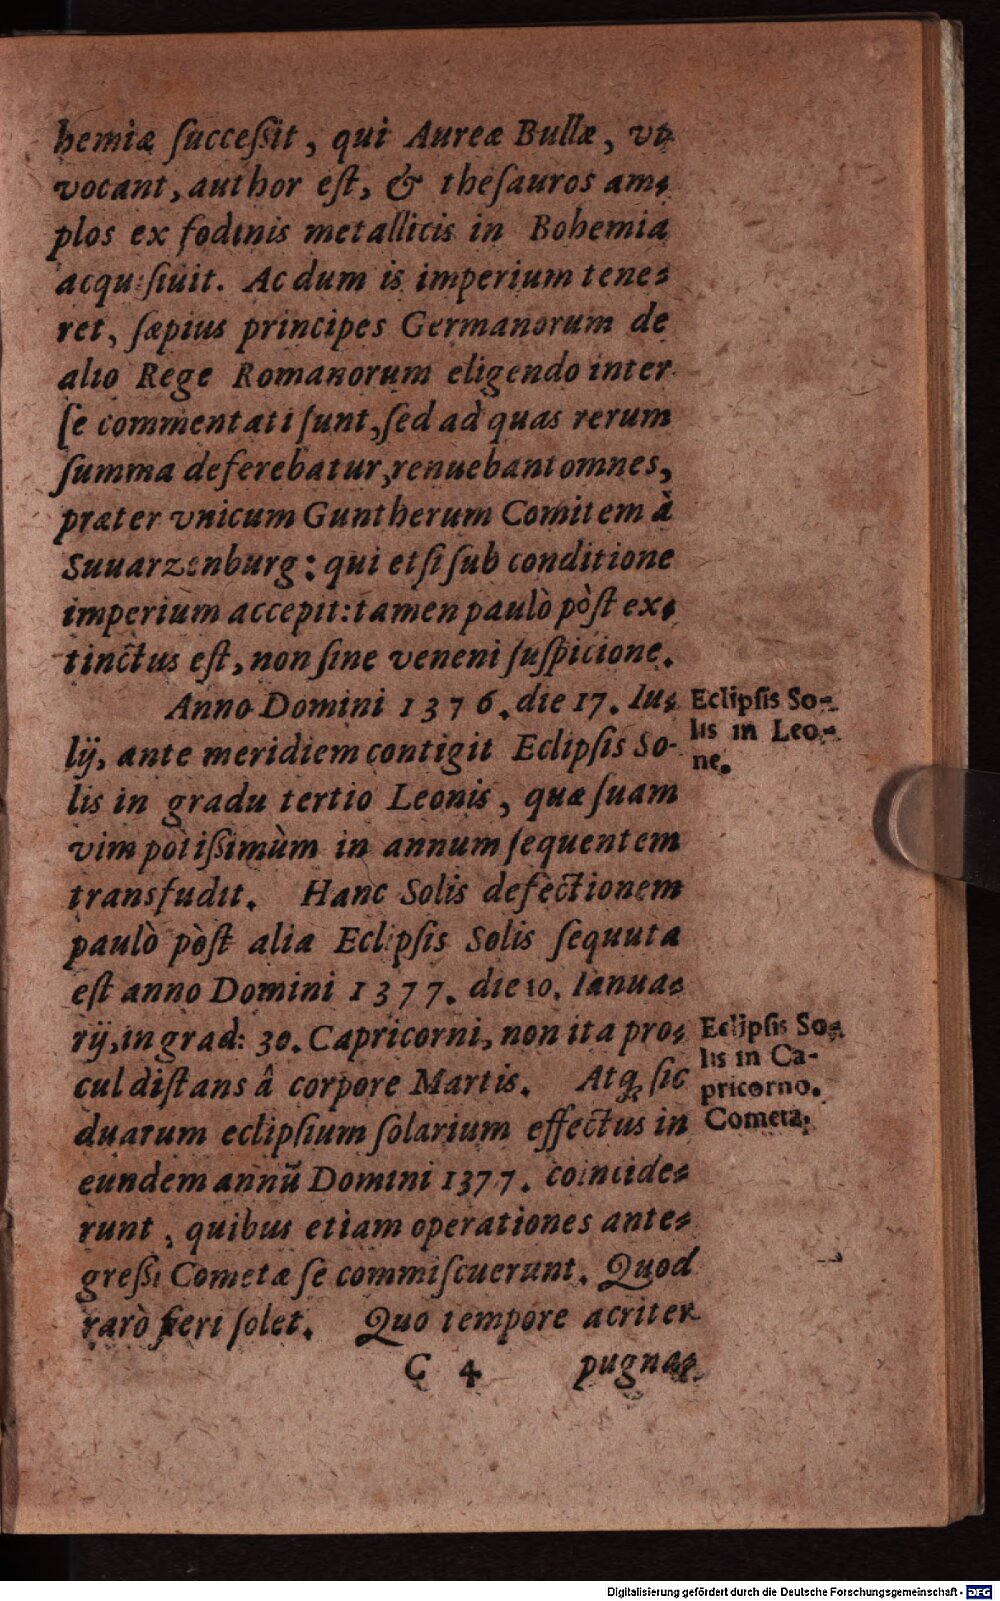 hemiæ ſucceſsit, qui Aureæ Bullæ, vt
vocant, author eſt, & theſauros am⸗
plos ex fodinis metallicis in Bohemia
acquiſiuit. Ac dum is imperium tene⸗
ret, ſæpius principes Germanorum de
alio Rege Romanorum eligendo inter
ſe commentati ſunt, ſed ad quas rerum
ſumma deferebatur, renuebant omnes,
præter vnicum Guntherum Comitem à
Suuarzenburg: qui etſi ſub conditione
imperium accepit: tamen paulò pòſt ex⸗
tinctus eſt, non ſine veneni ſuſpicione.
Anno Domini 1376. die 17. Iu⸗
lij, ante meridiem contigit Eclipſis So-
lis in gradu tertio Leonis, quæ ſuam
vim potiſsimùm in annum ſequentem
transfudit. Hanc Solis defectionem
paulò pòſt alia Eclipſis Solis ſequuta
eſt anno Domini 1377. die 10. Ianua⸗
rij, in grad: 30. Capricorni, non ita pro⸗
cul diſtans â corpore Martis. Atq; ſic
duarum eclipſium ſolarium effectus in
eundem annũ Domini 1377. coincide⸗
runt, quibus etiam operationes ante⸗
greſsi Cometæ ſe commiſcuerunt. Quod
rarò fieri ſolet. Quo tempore acriter
C 4 pugna⸗
Eclipſis So⸗
lis in Leo⸗
ne.
Eclipſis So⸗
lis in Ca-
pricorno.
Cometa.
Digitalisierung gefördert durch die Deutsche Forschungsgemeinschaft - DFG